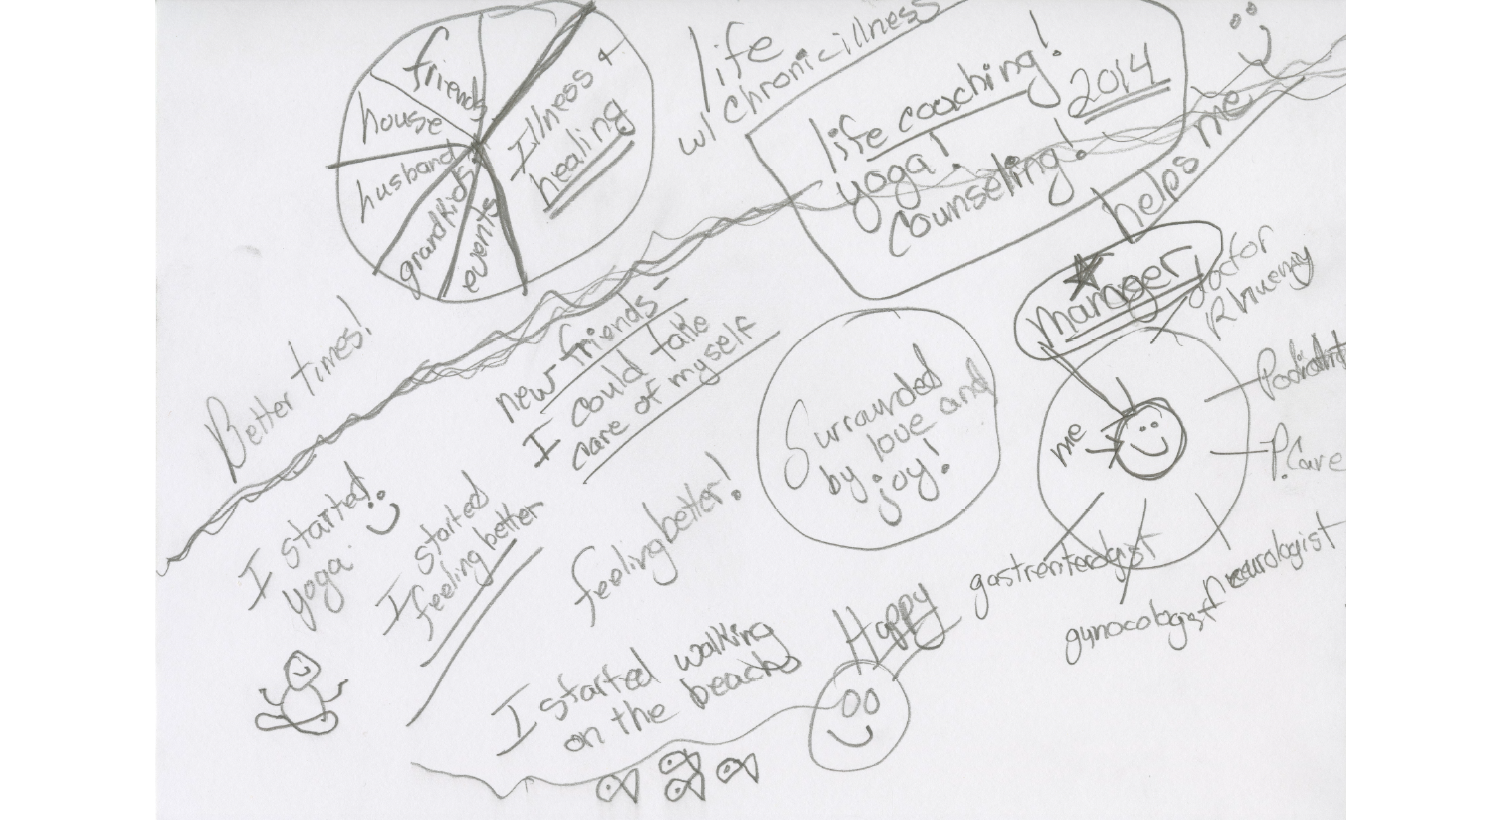 friends
house
husband
grandkids
events
Illness +
healing
life
w/ chronic illness
life coaching!
2014
yoga!
counseling!
helps me
manager
doctor
Better times!
new friends-
I could take
care of myself
Surrounded
by love and
joy!
me
P. Care
neurologist
gynocologist
I started!
yoga.
I started
feeling better
feeling better!
I started walking
on the beach
Happy